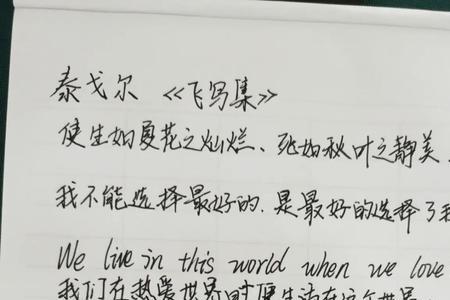 泰戈尔 《飞鸟集》
使生如夏花之灿烂、死如秋叶之静美、
我不能选择最好的.是最好的选择了我
We live in this world when we love
我们在热爱世界时便生活在这个世界